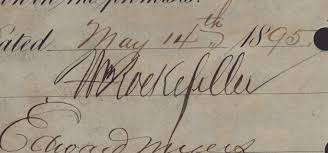 in the premises.
ated May 14th 1895.
Wm Rockefeller
Edward Myers